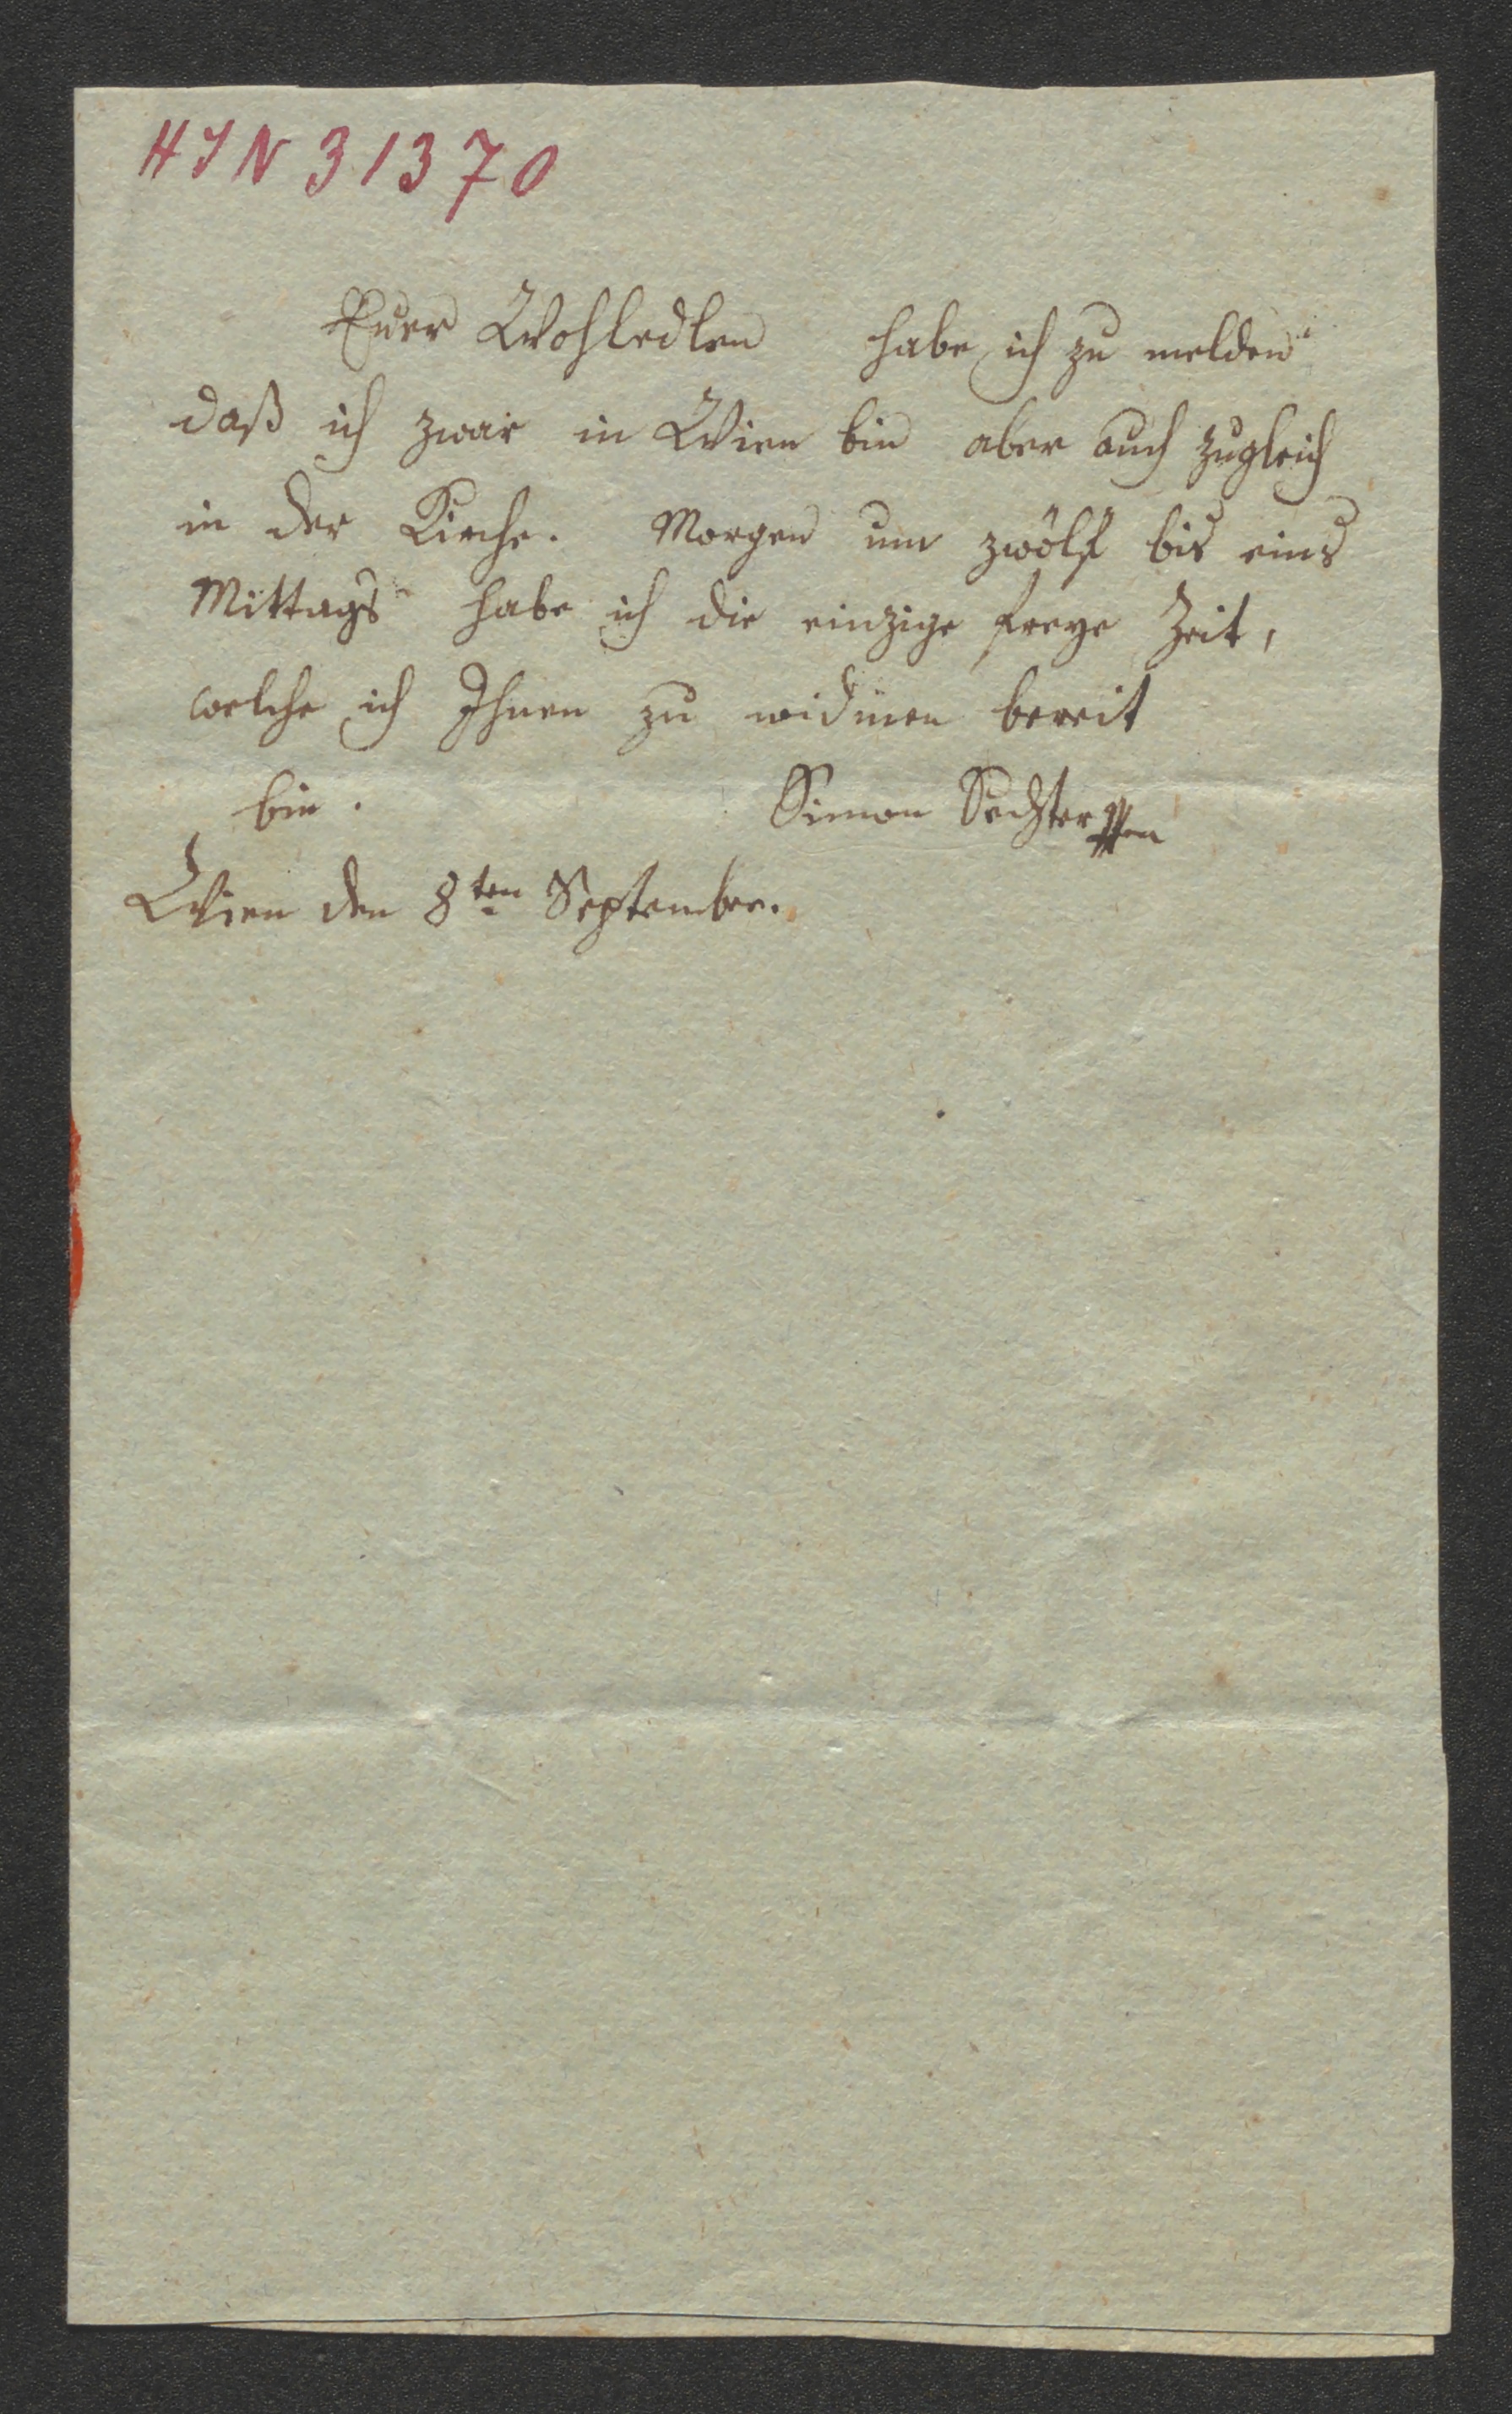 HJN 31370
Euer Wohledlen habe ich zu melden
daß ich zwar in Wien bin aber auch zugleich
in der Kirche. Morgen um zwölf bis eins
Mittags habe ich die einzige freye Zeit,
welche ich Ihnen zu widmen bereit
bin. Simon Sechter
Wien den 8ten September.